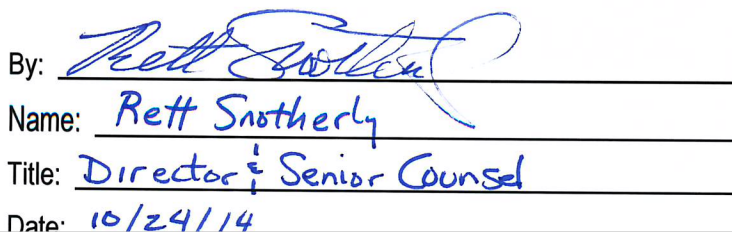 By: Rett Snotherly
Name: Rett Snotherly
Title: Director & Senior Counsel
Date: 10/24/14